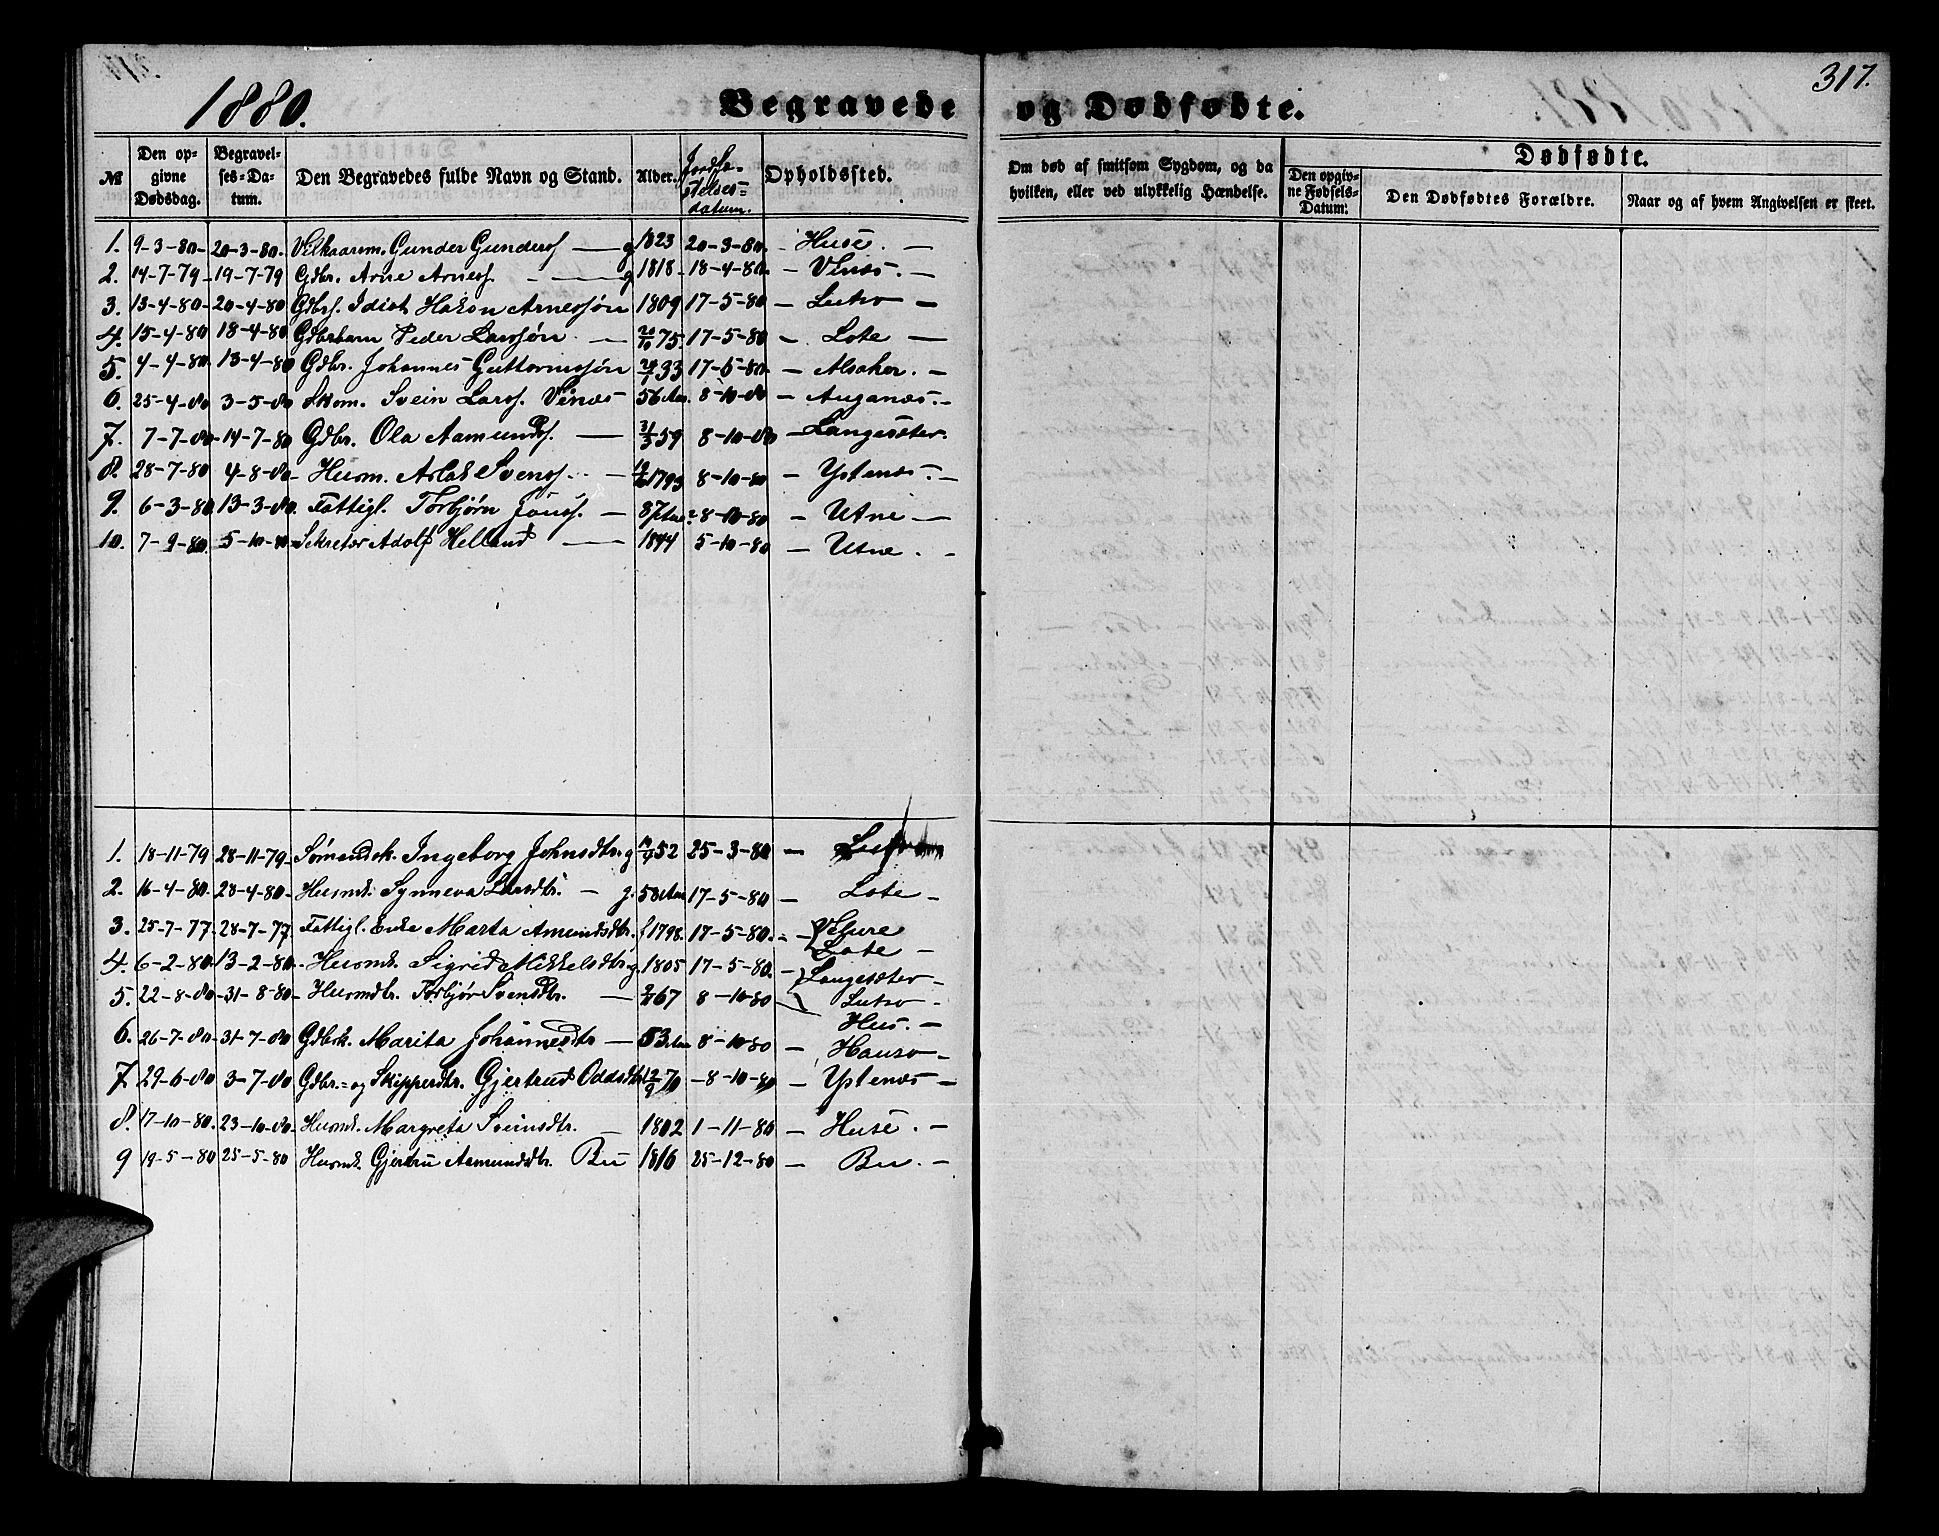 1880.
Begravede og Dødfødte.
317.
№ Den opgivne Dødsdag. Begravelses-Datum. Den Begravedes fulde Navn og Stand. Alder. Jordfæstelsesdatum. Opholdssted. Om død af smitsom Sygdom, og da hvilken, eller ved ulykkelig Hændelse.
Dødfødte.
Den opgivne Fødsels-Datum. Den Dødfødtes Forældre. Naar og af hvem Angivelsen er skeet.
1. 9-3-80- 20-3-80. Vilkaarsm. Gunder Gunders. — g 1823 20-3-80. - Huse. —
2. 14-7-79- 19-7-79 Gdbr. Arne Arness. - — g 1818- 18-4-80. - Vines. —
3. 13-4-80- 20-4-80 Gdbrs. Idiot Hakon Arnessøn 1809 17-5-80 — Lutro —
4. 15-4-80 18-4-80 Gdbrbarn Peder Larssøn. — 20/10 75. 17-5-80 - Lote —
5. 4-4-80 13-4-80 Gdbr. Johannes Guttormssøn 33 17-5-80. - Alsaker. —
6. 25-4-80 3-5-80 Skom. Svein Larss. Vines 56 Aar. 8-10-80 — Auganæs. —
7. 7-7-80- 14-7-80 Gdbr. Ola Aamunds. — 31/3 59 8-10-80 — Langesæter.
8. 28-7-80 4-8-80- Husm. Aslak Svens. — 1793 8-10-80 — Ystenæs. —
9. 6-3-80 13-3-80. Fattigl. Torbjørn Jons. — 87 Aar 8-10-80 — Utne —
10. 7-9-80. 5-10-80- Sekretær Adolf Helland — 1844 5-10-80 — Utne. -
1. 18-11-79 28-11-79- Sømandsk. Ingeborg Johnsdtr. g 52 25-3-80 —
2. 16-4-80- 28-4-80- Husmk. Synneva Larsdtr. — g. 58 Aar 17-5-80 — Lote -
3. 25-7-77- 28-7-77. Fattigl. Enke Marta Amundsdtr. f 1798. 17-5-80. - Velure
Lote —
4. 6-2-80 13-2-80. Husmk. Sigrid Mikkelsdtr. g. 1805 17-5-80. - Langesæter -
5. 22-8-80- 31-8-80- Husmdtr. Torbjør Svensdtr. — 67 8-10-80 Lutro -
Hus. —
6. 26-7-80- 31-7-80 Gdbrk. Marita Johannesdtr — 53 Aar 8-10-80 — Hauso -
7. 29-6-80 3-7-80 Gdbr.- og Skipperdtr. Gjertrud Oddsdtr. 12/9 70 - 8-10-80 — Ystenæs —
8. 17-10-80. 23-10-80- Husmk. Margreta Sveinsdtr. — 1802 1-11-80 — Huse. —
9 19-5-80 25-5-80 Husmk. Gjertru Aamundsdtr. Bu 1816 25-12-80 — Bu. —